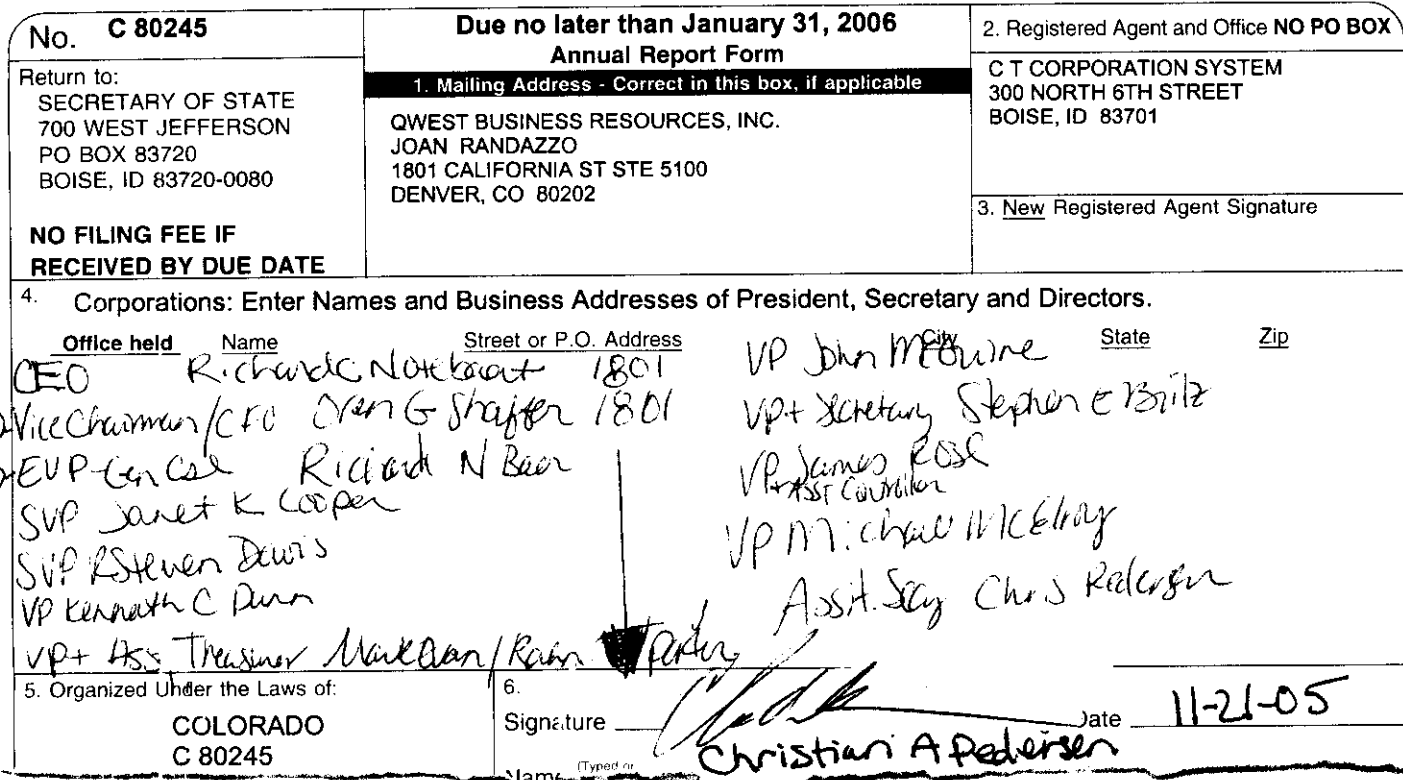 No. C 80245
Return to:
SECRETARY OF STATE
700 WEST JEFFERSON
PO BOX 83720
BOISE, ID 83720-0080
NO FILING FEE IF
RECEIVED BY DUE DATE
Due no later than January 31, 2006
Annual Report Form
1. Mailing Address - Correct in this box, if applicable
QWEST BUSINESS RESOURCES, INC.
JOAN RANDAZZO
1801 CALIFORNIA ST STE 5100
DENVER, CO 80202
2. Registered Agent and Office NO PO BOX
C T CORPORATION SYSTEM
300 NORTH 6TH STREET
BOISE, ID 83701
3. New Registered Agent Signature
4. Corporations: Enter Names and Business Addresses of President, Secretary and Directors.
Office held Name Street or P.O. Address City State Zip
CEO Richard C Notebaert 1801
Vice Chairman/CFO Oren G Shaffer 1801
EVP Gen Csl Richard N Baer
SVP Janet K Cooper
SVP R Steven Davis
VP Kenneth C Dunn
VP + Ass Treasurer
VP John
VP + Secretary Stephen E Brilz
VP James Rose
+ Asst Controller
VP Michael McElroy
Assit. Secy Chris Pedersen
5. Organized Under the Laws of:
COLORADO
C 80245
6.
Signature Date 11-21-05
Name (Typed or Christian A Pedersen